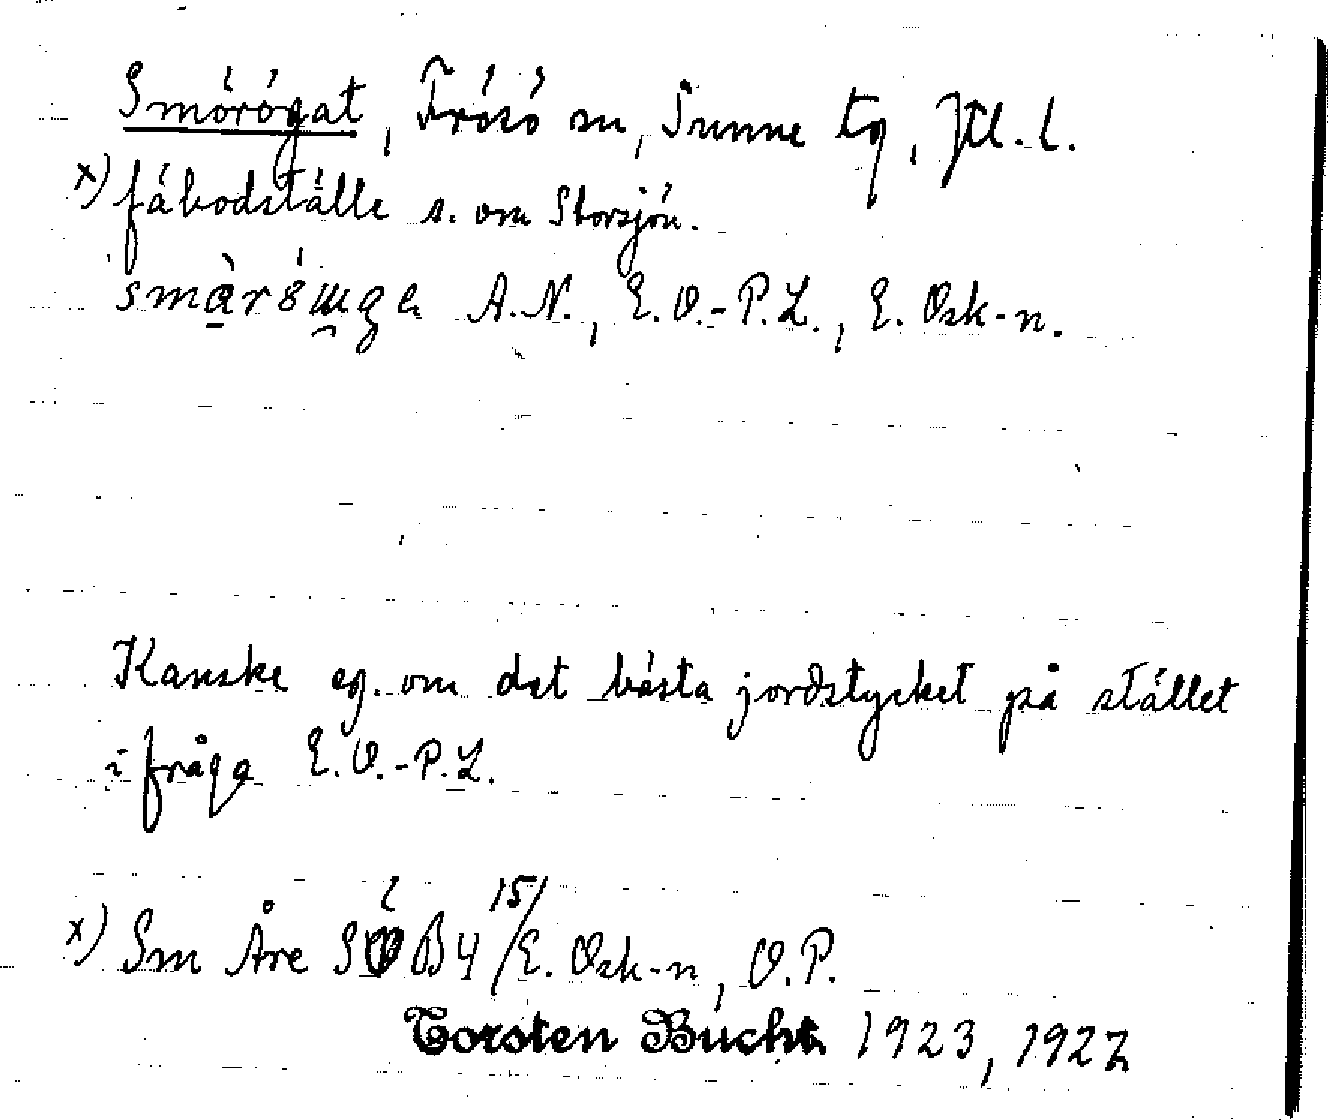 Smörögat, Frösö sn, Sunne tg, Jtl. l.
x) fäbodställe s. om Storsjön.
A.N., E.O.-P.L., E. Osk-n.
Kanske eg. om det bästa jordstycket på stället
i fråga E.O.-P.L.
x) Sm Åre SÖ B4 15/ E. Osk-n, O.P.
Torsten Bucht 1923, 1927